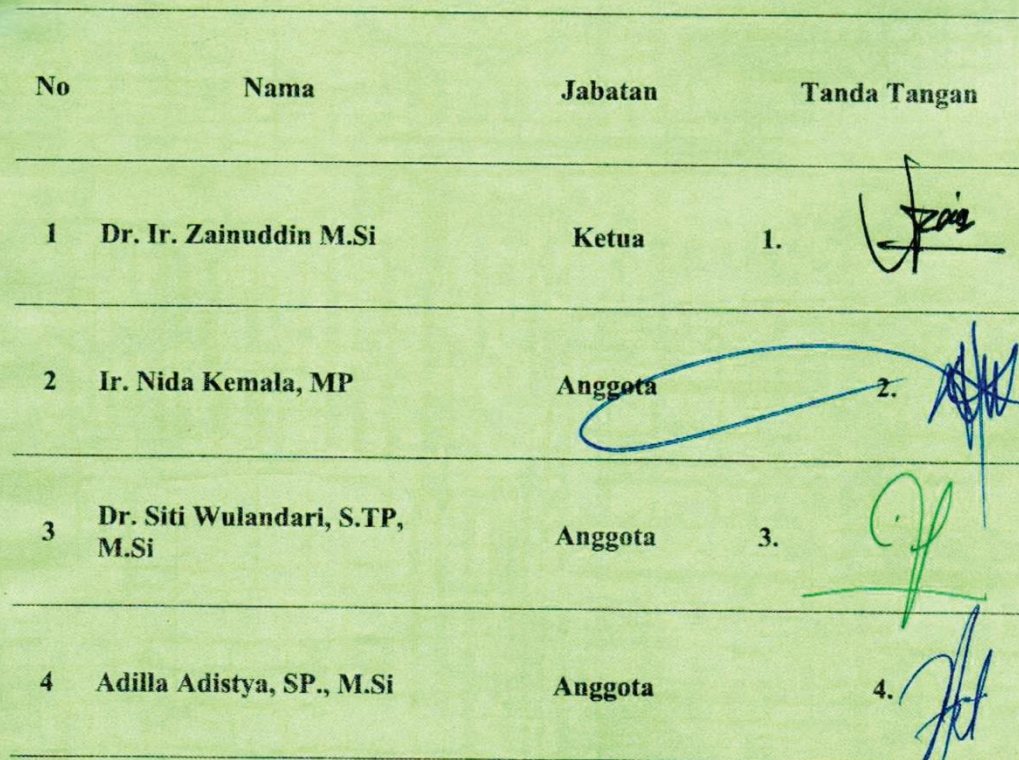 No Nama Jabatan Tanda Tangan
1 Dr. Ir. Zainuddin M.Si Ketua 1.
2 Ir. Nida Kemala, MP Anggota 2.
3 Dr. Siti Wulandari, S.TP, M.Si Anggota 3.
4 Adilla Adistya, SP., M.Si Anggota 4.